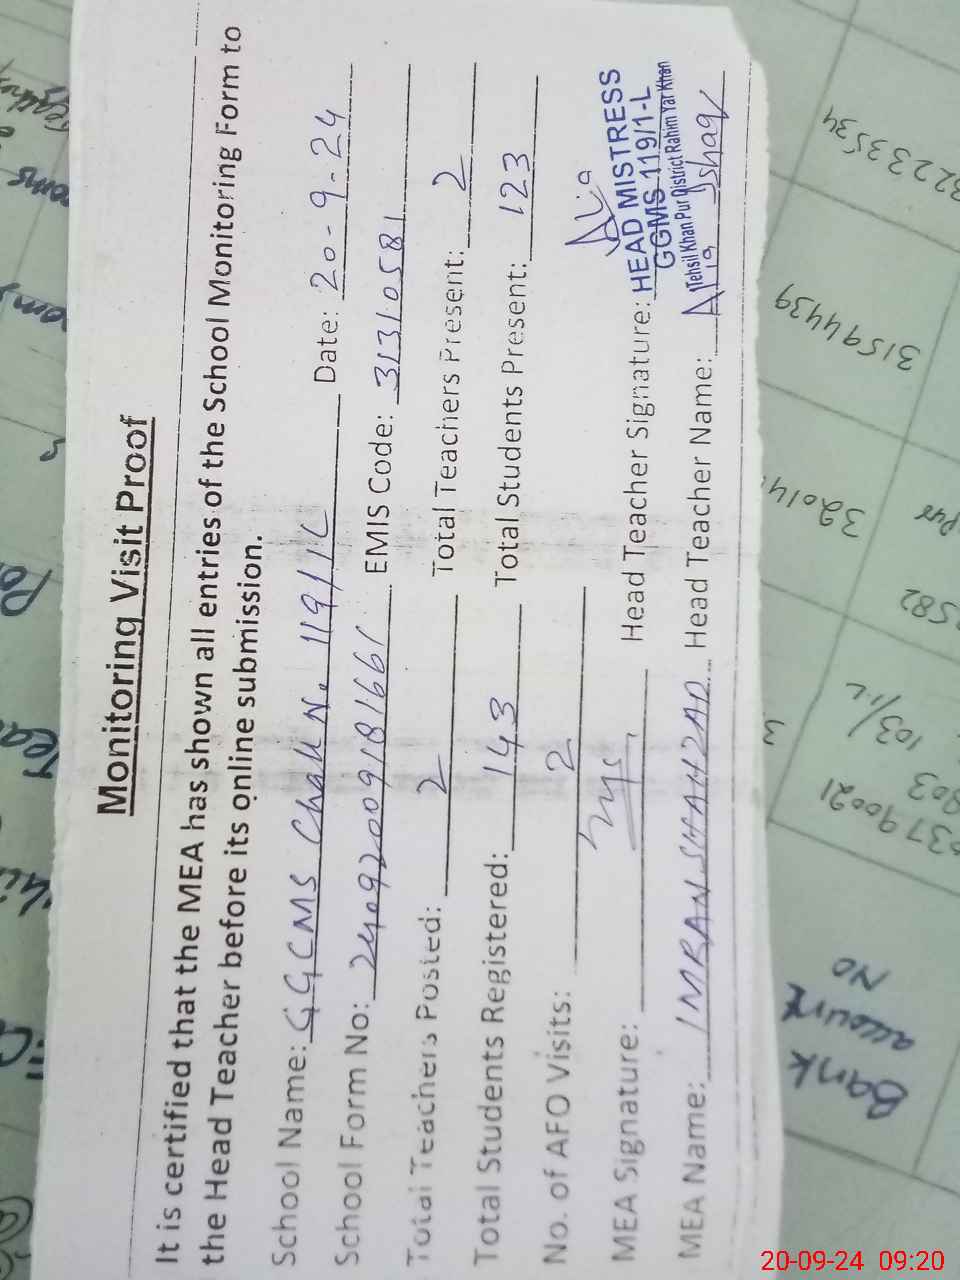 Monitoring Visit Proof
It is certified that the MEA has shown all entries of the School Monitoring Form to
the Head Teacher before its online submission.
School Name: GGCMS Chak N. 119/1L Date: 20-9-24
School Form No: 24092009181661 EMIS Code: 31310581
Total Teachers Posted: 2 Total Teachers Present: 2
Total Students Registered: 143 Total Students Present: 123
No. of AFO Visits: 2
MEA Signature: Head Teacher Signature:
HEAD MISTRESS
GGMS 119/1-L
Tehsil Khan Pur District Rahim Yar Khan
MEA Name: IMRAN SHAHZAD Head Teacher Name: Ishaq
Bank
account
NO
37190021
803
103/1L
582
Pur
32014
31594439
32233534
20-09-24 09:20